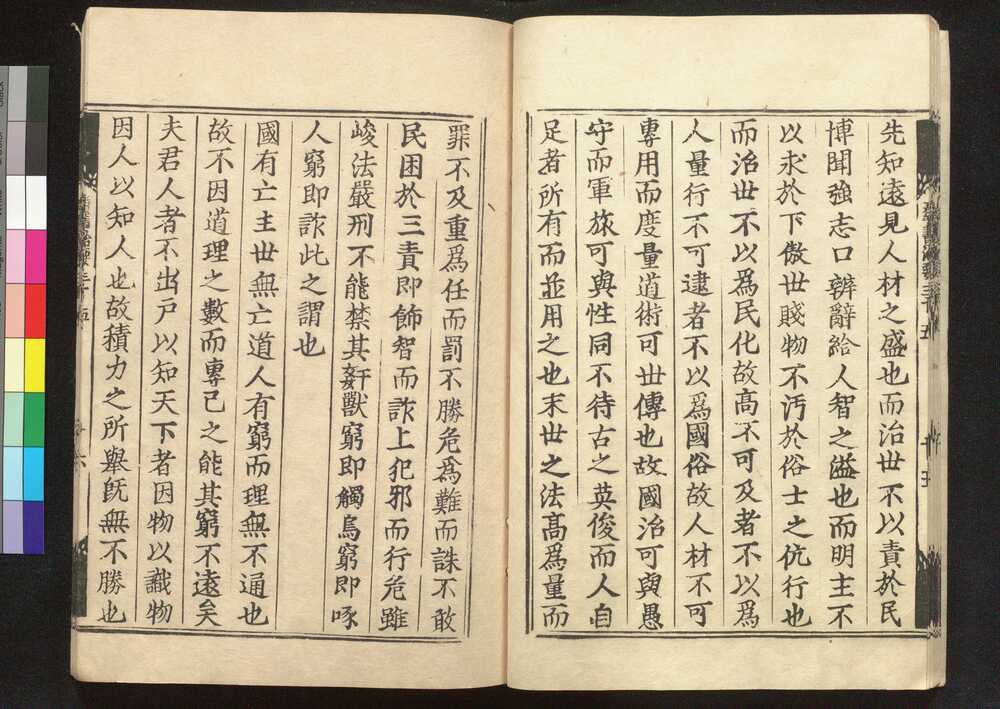 先知遠見人材之盛也而治世不以責於民
博聞強志口辯辭給人智之溢也而明主不
以求於下傲世賤物不汚於俗士之伉行也
而治世不以爲民化故高不可及者不以爲
人量行不可逮者不以爲國俗故人材不可
專用而度量道術可世傳也故國治可與愚
守而軍旅可與性同不待古之英俊而人自
足者所有而並用之也末世之法高爲量而
罪不及重爲任而罰不勝危爲難而誅不敢
民困於三責即飾智而詐上犯邪而行危雖
峻法嚴刑不能禁其姧獸窮即觸鳥窮即啄
人窮即詐此之謂也
國有亡主世無亡道人有窮而理無不通也
故不因道理之數而專己之能其窮不遠矣
夫君人者不出戶以知天下者因物以識物
因人以知人也故積力之所舉旣無不勝也